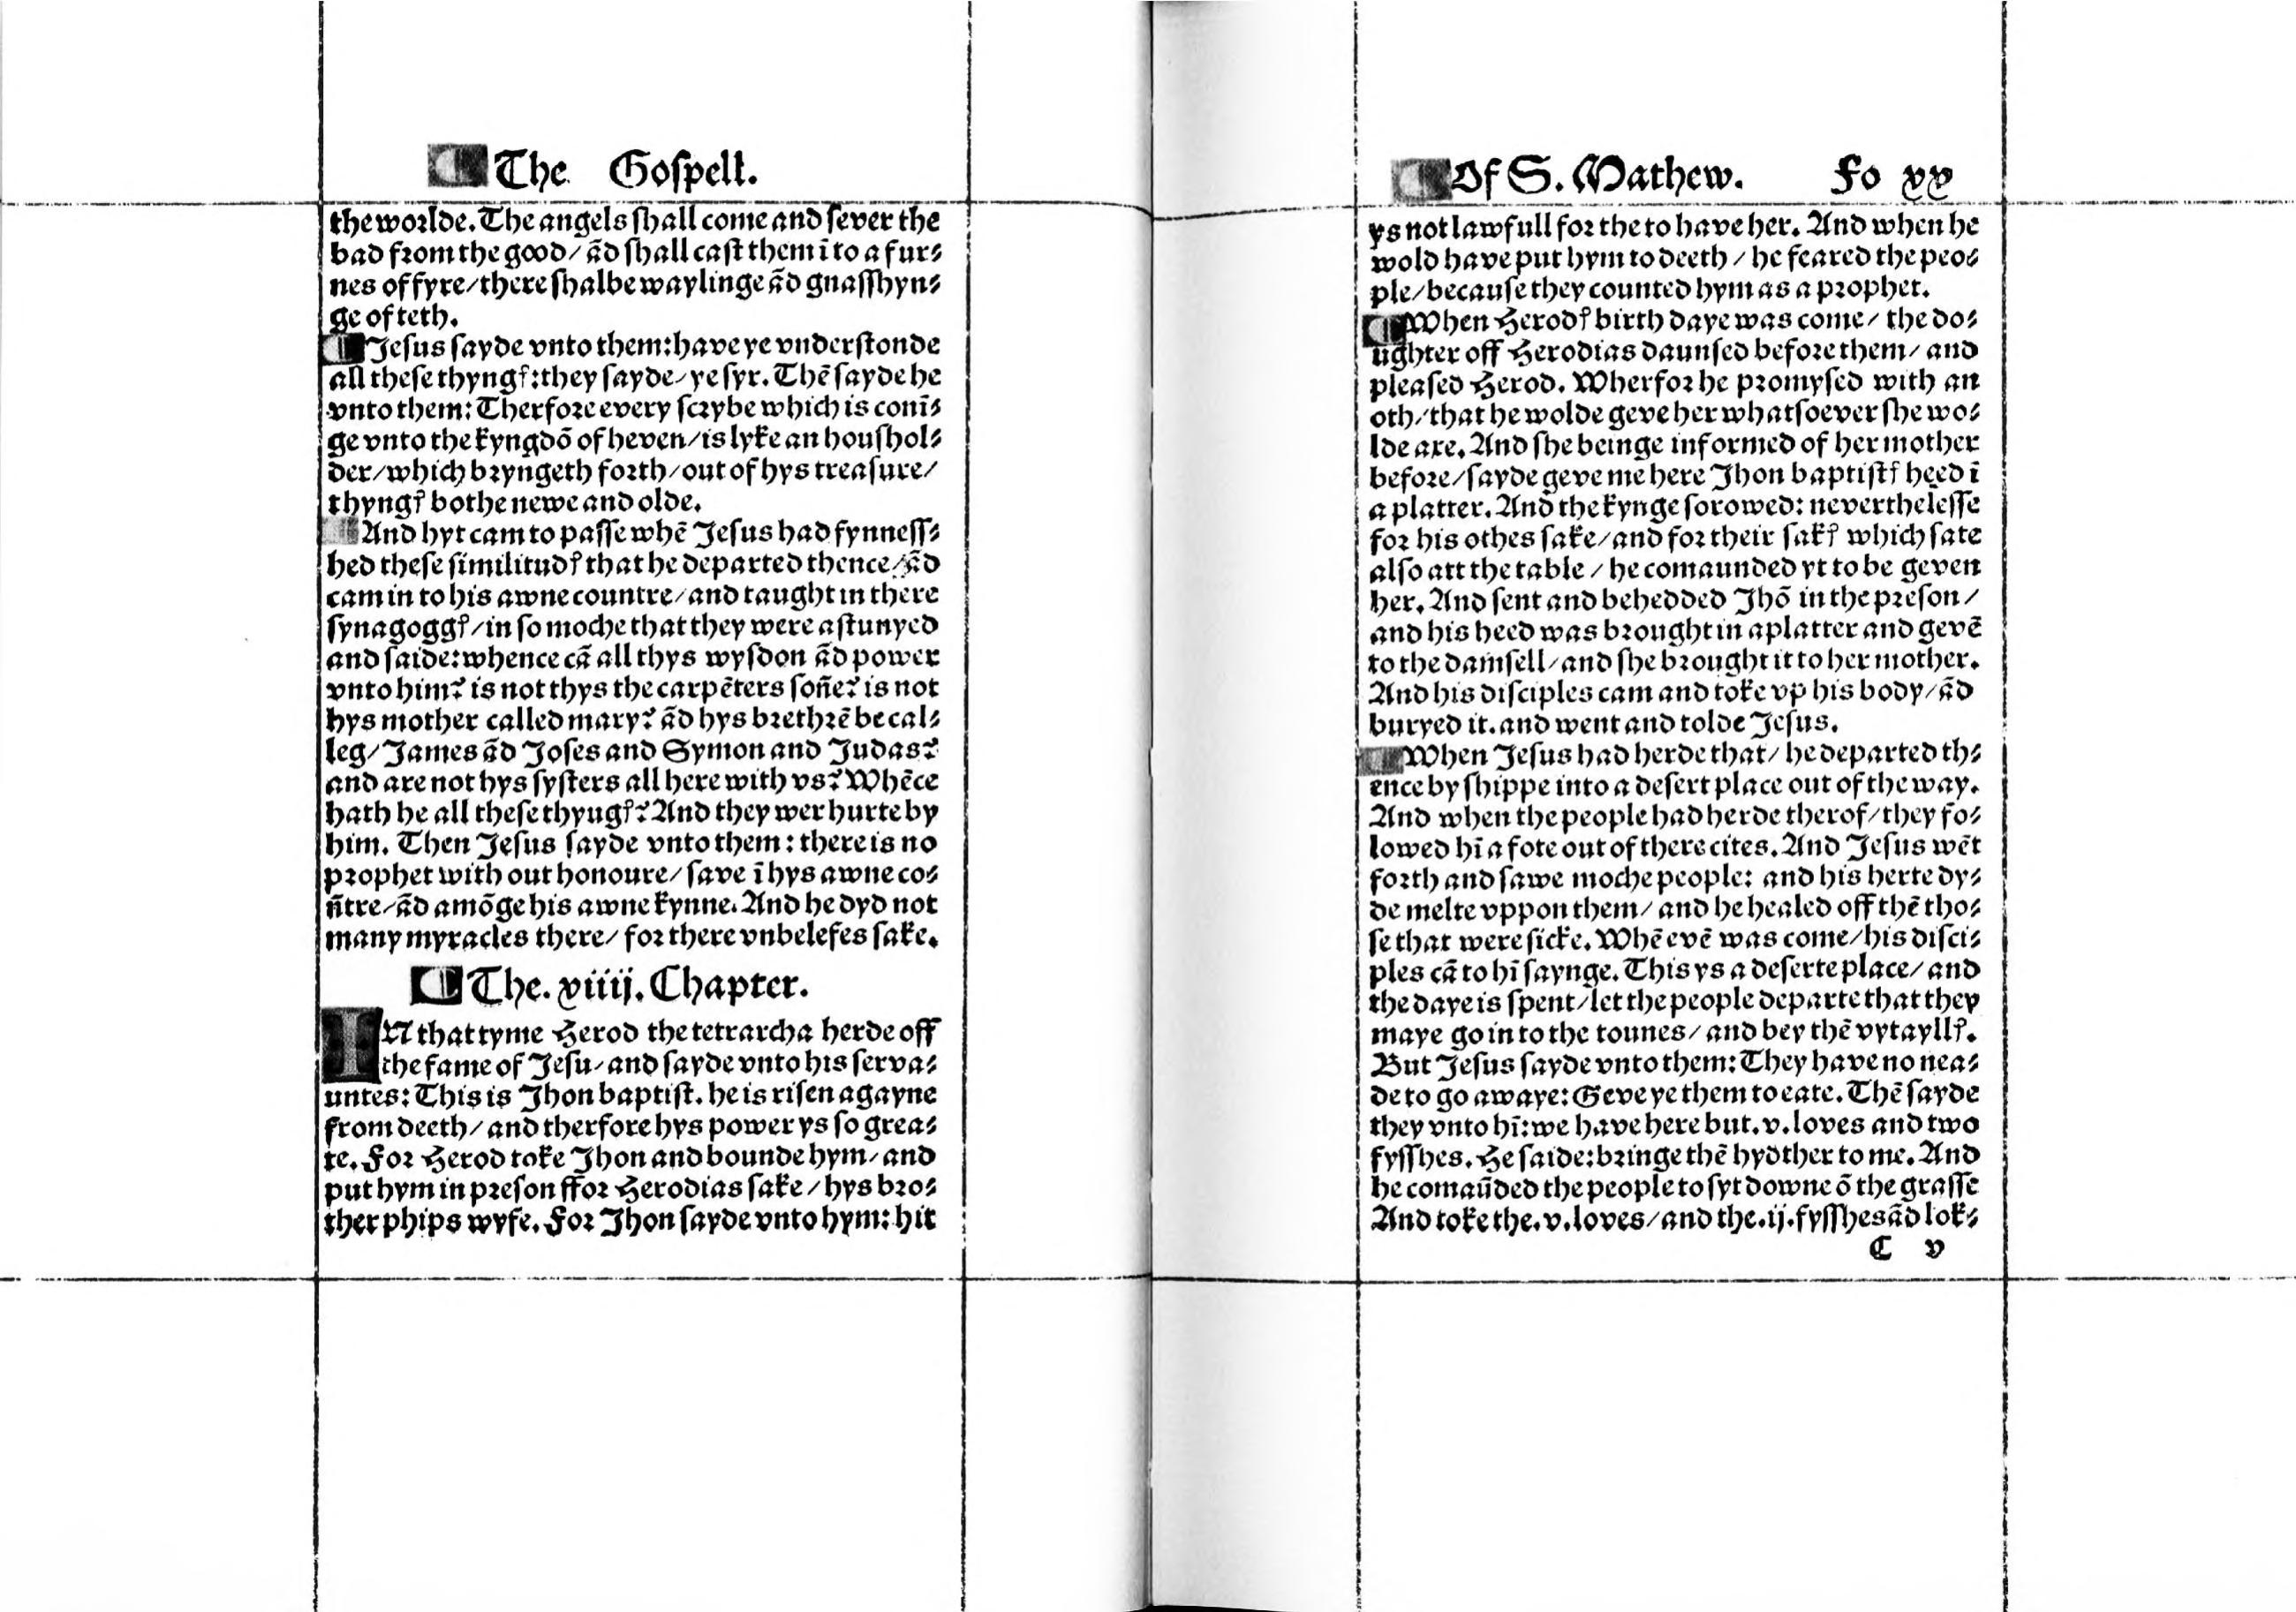 ¶ The Goſpell.
the worlde. The angels ſhall come and ſever the
bad from the good/ ãd ſhall caſt them ĩ to a fur⸗
nes of fyre/ there ſhalbe waylinge ãd gnaſſhyn⸗
ge of teth.
¶ Jeſus ſayde vnto them: have ye vnderſtonde
all theſe thyngꝭ: they ſayde/ ye ſyr. Thẽ ſayde he
vnto them: Therfore every ſcrybe which is conĩ⸗
ge vnto the kyngdõ of heven/ is lyke an houſhol⸗
der/ which bryngeth forth/ out of hys treaſure/
thyngꝭ bothe newe and olde.
¶ And hyt cam to paſſe whẽ Jeſus had fynneſſ⸗
hed theſe ſimilitudꝭ that he departed thence/ ãd
cam in to his awne countre/ and taught in there
ſynagoggꝭ/ in ſo moche that they were aſtunyed
and ſaide: whence cã all thys wyſdon ãd power
vnto him? is not thys the carpẽters ſoñe? is not
hys mother called mary? ãd hys brethrẽ be cal⸗
leg/ James ãd Joſes and Symon and Judas?
and are not hys ſyſters all here with vs? Whẽce
hath he all theſe thyugꝭ? And they wer hurte by
him. Then Jeſus ſayde vnto them: there is no
prophet with out honoure/ ſave ĩ hys awne co⸗
ñtre/ ãd amõge his awne kynne. And he dyd not
many myracles there/ for there vnbelefes ſake.
¶ The. xiiij. Chapter.
IN that tyme Herod the tetrarcha herde off
the fame of Jeſu/ and ſayde vnto his ſerva⸗
untes: This is Jhon baptiſt. he is riſen agayne
from deeth/ and therfore hys power ys ſo grea⸗
te. For Herod toke Jhon and bounde hym/ and
put hym in preſon ffor Herodias ſake/ hys bro⸗
ther phips wyfe. For Jhon ſayde vnto hym: hit
¶ Of S. Mathew. Fo xx
ys not lawfull for the to have her. And when he
wold have put hym to deeth/ he feared the peo⸗
ple/ becauſe they counted hym as a prophet.
¶ When Herodꝭ birth daye was come/ the do⸗
ughter off Herodias daunſed before them/ and
pleaſed Herod. Wherfor he promyſed with an
oth/ that he wolde geve her whatſoever ſhe wo⸗
lde axe. And ſhe beinge informed of her mother
before/ ſayde geve me here Jhon baptiſtꝭ heed ĩ
a platter. And the kynge ſorowed: nevertheleſſe
for his othes ſake/ and for their ſakꝭ which ſate
alſo att the table/ he comaunded yt to be geven
her. And ſent and behedded Jhõ in the preſon/
and his heed was brought in a platter and gevẽ
to the damſell/ and ſhe brought it to her mother.
And his diſciples cam and toke vp his body/ ãd
buryed it. and went and tolde Jeſus.
¶ When Jeſus had herde that/ he departed th⸗
ence by ſhippe into a deſert place out of the way.
And when the people had herde therof/ they fo⸗
lowed hĩ a fote out of there cites. And Jeſus wẽt
forth and ſawe moche people: and his herte dy⸗
de melte vppon them/ and he healed off thẽ tho⸗
ſe that were ſicke. Whẽ evẽ was come/ his diſci⸗
ples cã to hĩ ſaynge. This ys a deſerte place/ and
the daye is ſpent/ let the people departe that they
maye go in to the tounes/ and bey thẽ vytayllꝭ.
But Jeſus ſayde vnto them: They have no nea⸗
de to go awaye: Geve ye them to eate. Thẽ ſayde
they vnto hĩ: we have here but. v. loves and two
fyſſhes. He ſaide: bringe thẽ hydther to me. And
he comaũded the people to ſyt downe õ the graſſe
And toke the. v. loves/ and the. ij. fyſſhes ãd lok⸗
C v